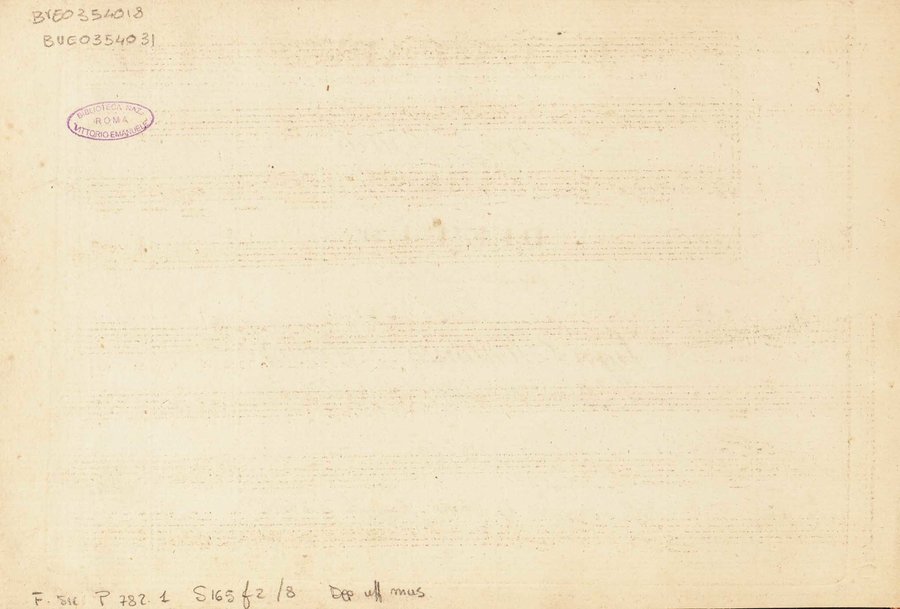 BVE0354018
BVE0354031
BIBLIOTECA NAZ.
ROMA
"VITTORIO EMANUELE"
F. SIE P 782. 1 S165 f2 /8 Dep uff mus